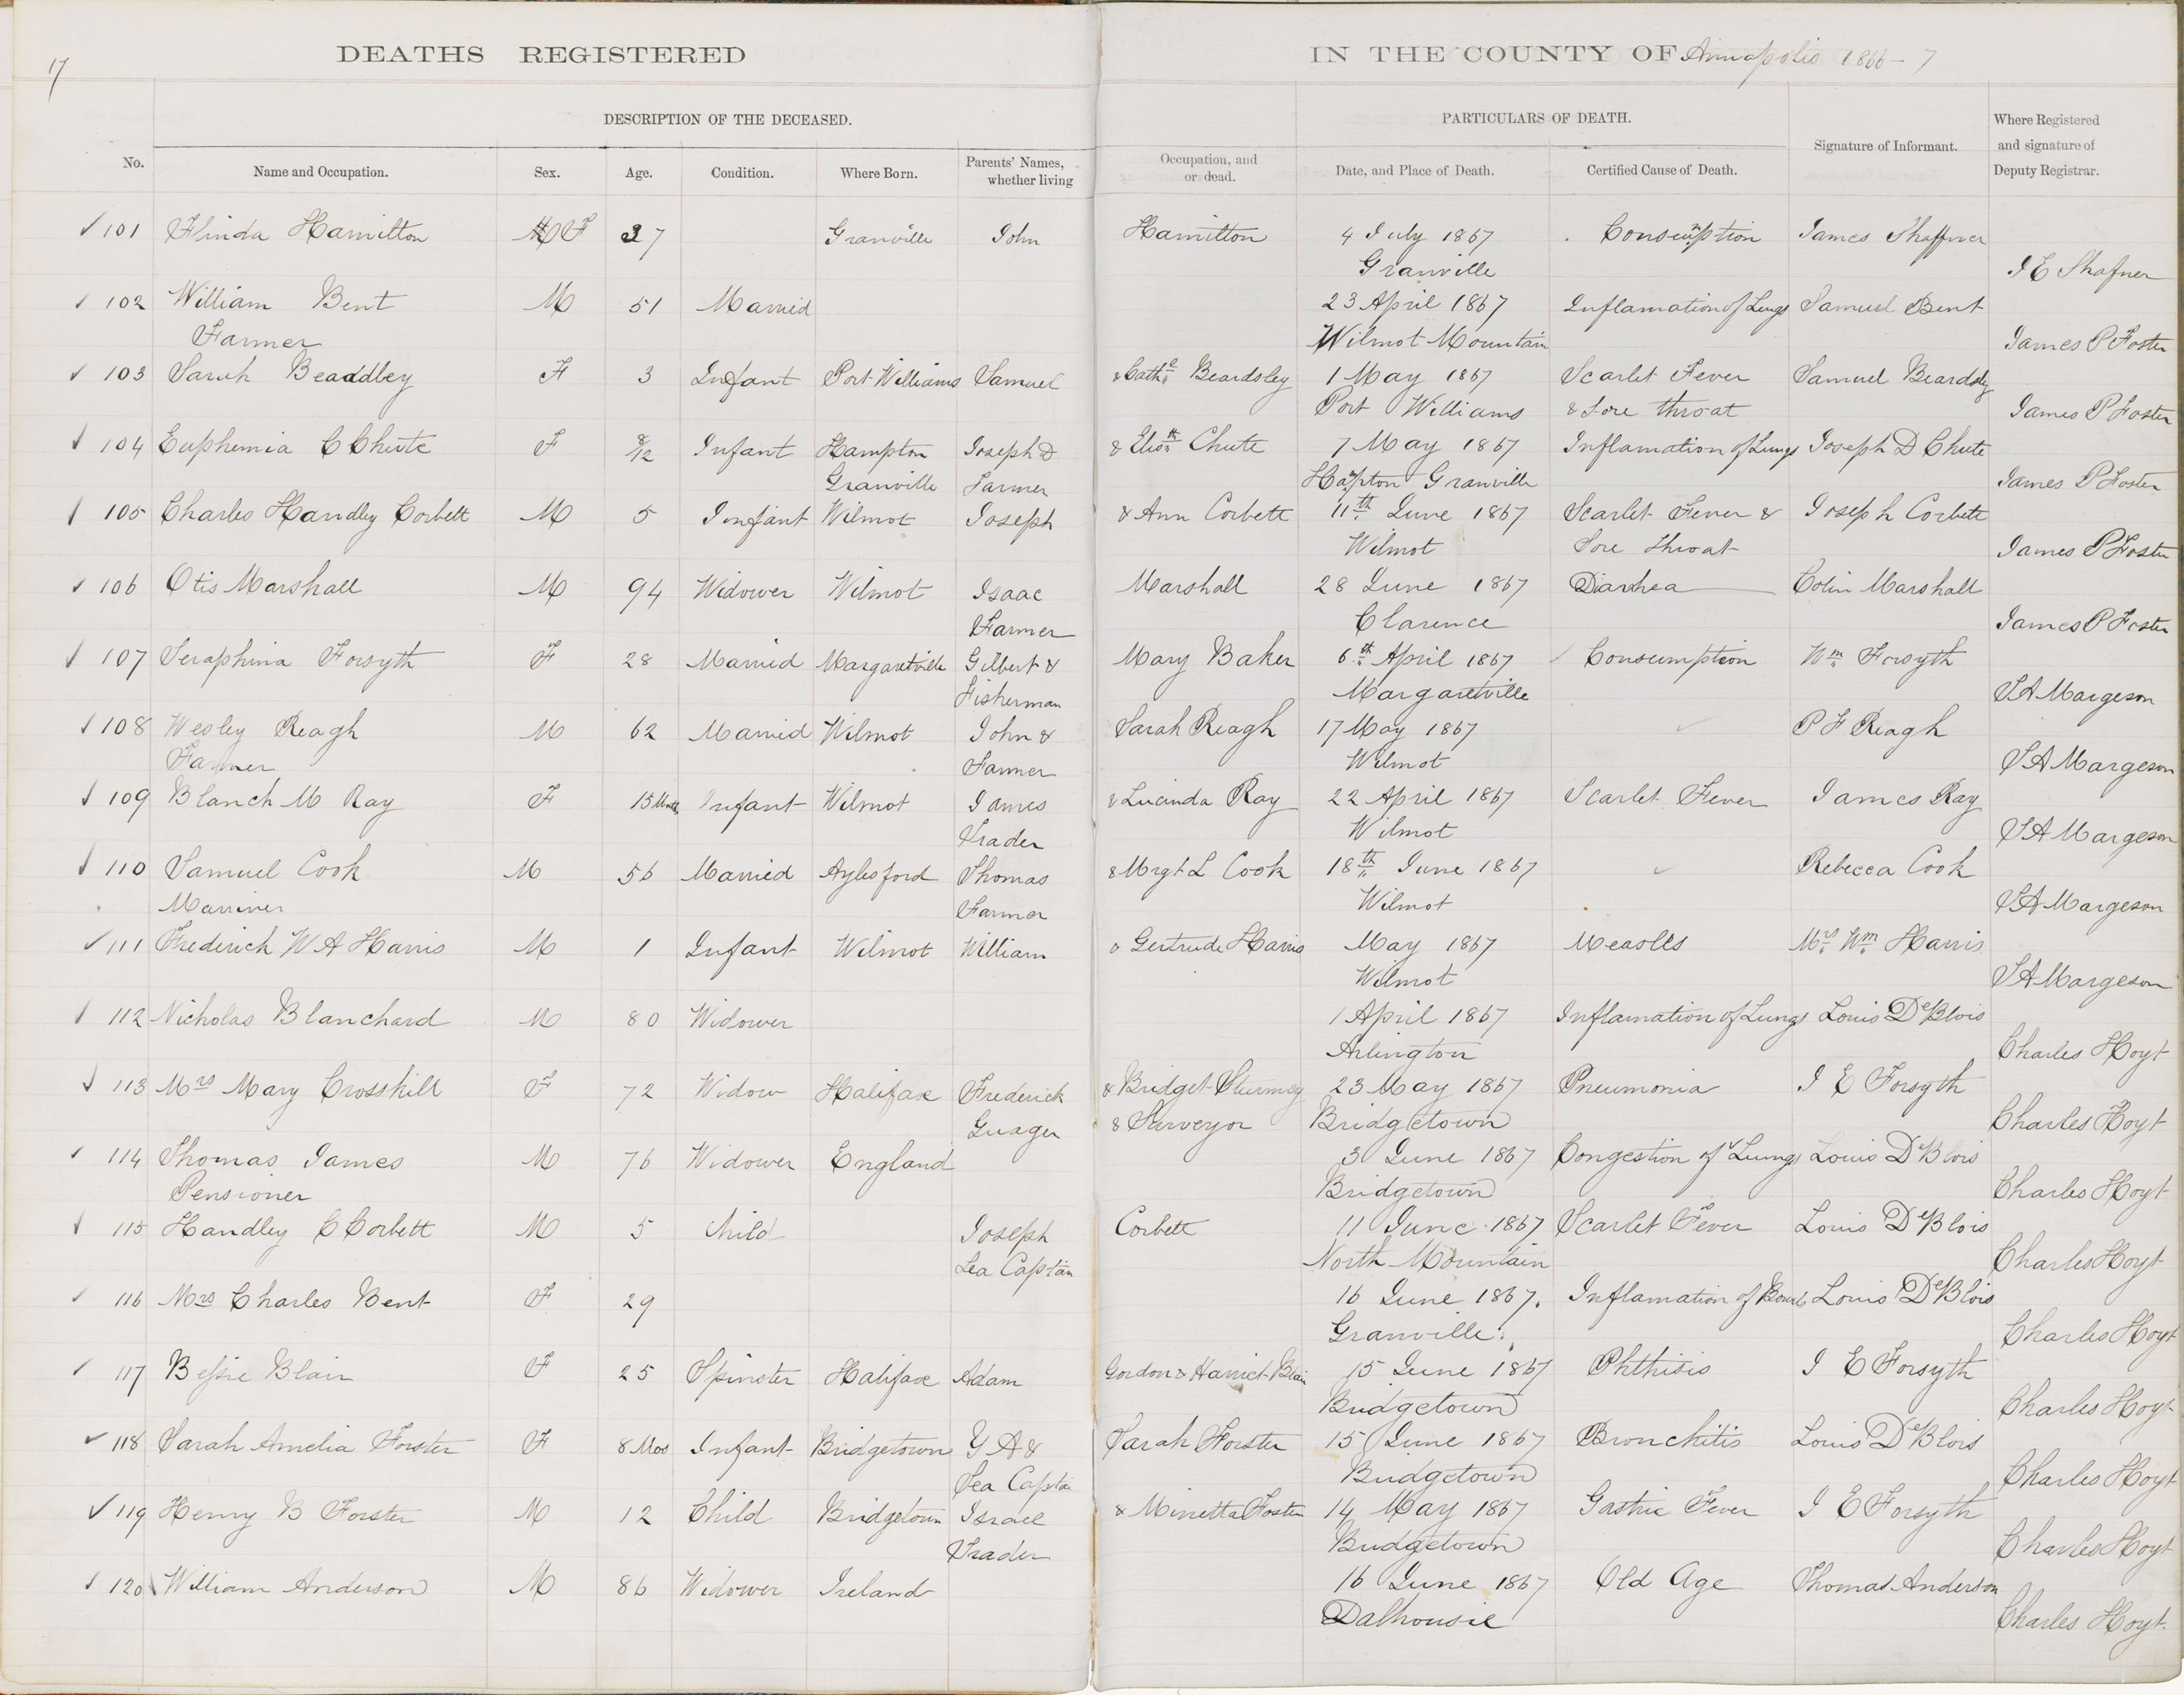 17
DEATHS REGISTERED IN THE COUNTY OF Annapolis 1866-7
DESCRIPTION OF THE DECEASED. PARTICULARS OF DEATH. Where Registered
and signature of
Deputy Registrar.
No. Name and Occupation. Sex. Age. Condition. Where Born. Parents' Names, whether living Occupation, and or dead. Date, and Place of Death. Certified Cause of Death. Signature of Informant.
101 Flinda Hamilton F 37 Granville John Hamilton 4 July 1867 Consumption James Shaffner
Granville I E Shafner
102 William Bent M 51 Married 23 April 1867 Inflamation of Lungs Samuel Bent
Farmer Wilmot Mountain James P Foster
103 Sarah Beaddley F 3 Infant Port Williams Samuel & Cathe Beardsley 1 May 1867 Scarlet Fever Samuel Beardsly
Port Williams & Sore throat James P Foster
104 Euphemia C Chute F 8/12 Infant Hampton Joseph D & Elizth Chute 7 May 1867 Inflamation of Lungs Joseph D Chute
Granville Farmer Hampton Granville James P Foster
105 Charles Handley Corbett M 5 Infant Wilmot Joseph & Ann Corbett 11th June 1867 Scarlet Fever & Joseph Corbett
Wilmot Sore throat James P Foster
106 Otis Marshall M 94 Widower Wilmot Isaac Marshall 28 June 1867 Diarrhea Colin Marshall
Farmer Clarence James P Foster
107 Seraphina Forsyth F 28 Married Margaretville Gilbert & Mary Baker 6th April 1867 Consumption Wm Forsyth
Fisherman Margaretville S A Margeson
108 Wesley Reagh M 62 Married Wilmot John & Sarah Reagh 17 May 1867 P F Reagh
Farmer Farmer Wilmot S A Margeson
109 Blanch M Ray F 15 Mnths Infant Wilmot James & Lucinda Ray 22 April 1867 Scarlet Fever James Ray
Trader Wilmot S A Margeson
110 Samuel Cook M 56 Married Aylesford Thomas & Mrgt L Cook 18th June 1867 Rebecca Cook
Marriner Farmer Wilmot S A Margeson
111 Frederick W A Harris M 1 Infant Wilmot William & Gertrude Harris May 1867 Measles Mrs Wm Harris
Wilmot S A Margeson
112 Nicholas Blanchard M 80 Widower 1 April 1867 Inflamation of Lungs Louis DeBlois
Arlington Charles Hoyt
113 Mrs Mary Crosskill F 72 Widow Halifax Frederick & Bridget Sturmey 23 May 1867 Pneumonia I E Forsyth
Guager & Surveyor Bridgetown Charles Hoyt
114 Thomas James M 76 Widower England 3 June 1867 Congestion of Lungs Louis DeBlois
Pensioner Bridgetown Charles Hoyt
115 Handley C Corbett M 5 Child Joseph Corbett 11 June 1867 Scarlet Fever Louis DeBlois
Sea Captain North Mountain Charles Hoyt
116 Mrs Charles Bent F 29 16 June 1867. Inflamation of Bowels Louis DeBlois
Granville Charles Hoyt
117 Bessie Blair F 25 Spinster Halifax Adam Gordon & Harriet Blair 15 June 1867 Phthisis I E Forsyth
Bridgetown Charles Hoyt
118 Sarah Amelia Forster F 8 Mos Infant Bridgetown Y A & Sarah Forster 15 June 1867 Bronchitis Louis DeBlois
Sea Captain Bridgetown Charles Hoyt
119 Henry B Forster M 12 Child Bridgetown Israel & Minetta Foster 14 May 1867 Gastric Fever I E Forsyth
Trader Bridgetown Charles Hoyt
120 William Anderson M 86 Widower Ireland 16 June 1867 Old Age Thomas Anderson
Dalhousie Charles Hoyt